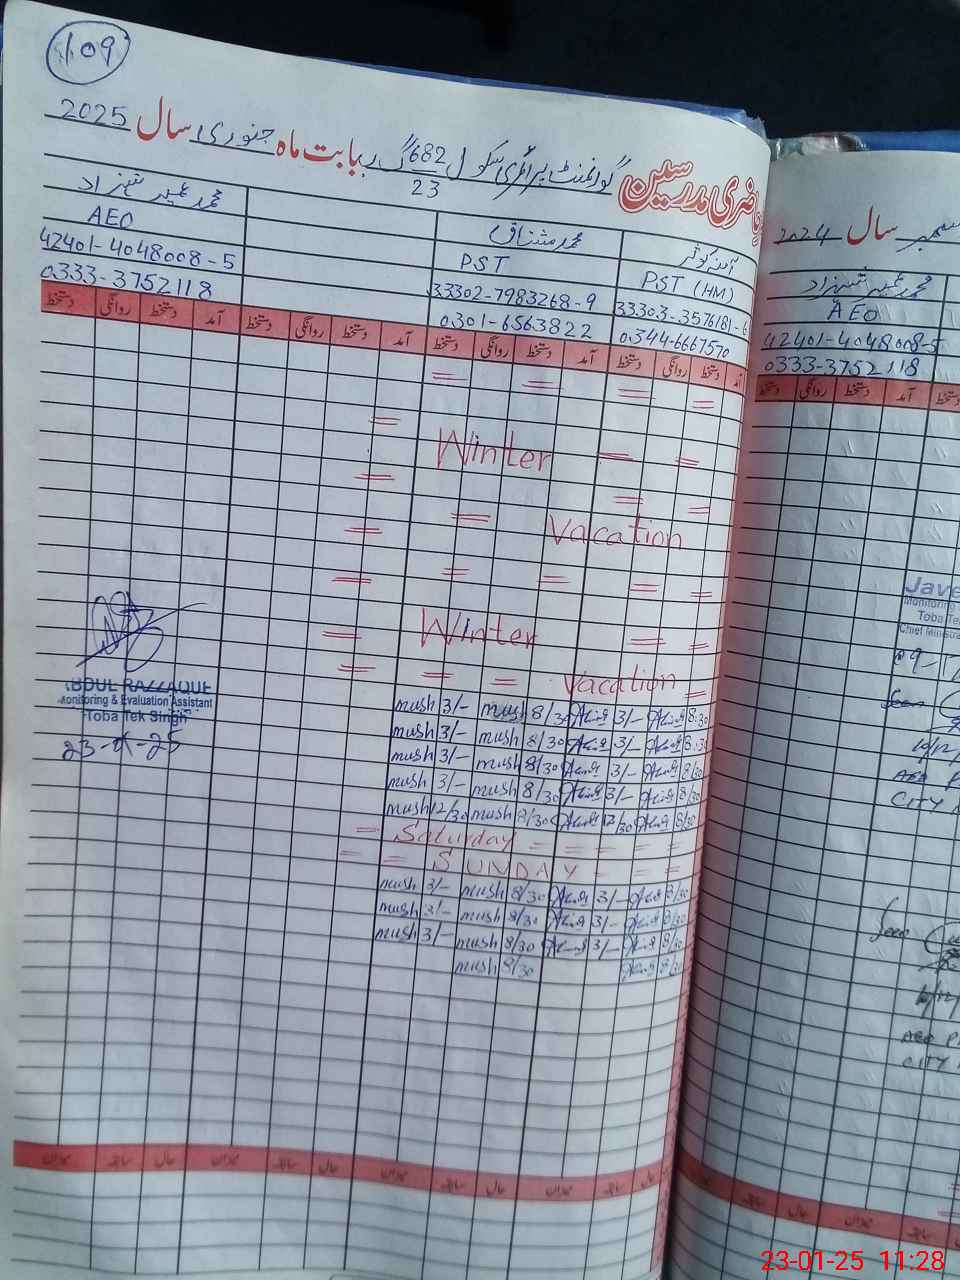 109
حاضری مدرسین گورنمنٹ پرائمری سکول 682/23 گ ب بابت ماہ جنوری سال 2025
آمنہ کوثر
PST (HM)
33303-3576181-6
0344-6667570
محمد مشتاق
PST
33302-7983268-9
0301-6563822
محمد عمیر شہزاد
AEO
42401-4048008-5
0333-3752118
آمد دستخط روانگی دستخط آمد دستخط روانگی دستخط آمد دستخط روانگی دستخط آمد دستخط روانگی دستخط
Winter
Vacation
Winter
Vacation
mush 3/- mush 8/30 3/- 8:30
mush 3/- mush 8/30 3/- 8:30
mush 3/- mush 8/30 3/- 8/30
mush 3/- mush 8/30 3/- 8/30
mush 12/30 mush 8/30 12/30 8/30
Saturday
SUNDAY
mush 3/- mush 8/30 3/- 8/30
mush 3/- mush 8/30 3/- 8/30
mush 3/- mush 8/30 3/- 8/30
mush 8/30 8/30
ABDUL RAZZAQUE
Monitoring & Evaluation Assistant
Toba Tek Singh
23-01-25
میزان سابقہ حال میزان سابقہ حال میزان سابقہ حال میزان سابقہ حال
سال 2024
محمد عمیر شہزاد
AEO
42401-4048008-5
0333-3752118
دستخط روانگی دستخط آمد دستخط
Jave
Monitoring
Toba Te
Chief Minist
10/12
AEO
CITY
10/12
AEO P
CITY
حال سابقہ میزان حال سابقہ
23-01-25 11:28